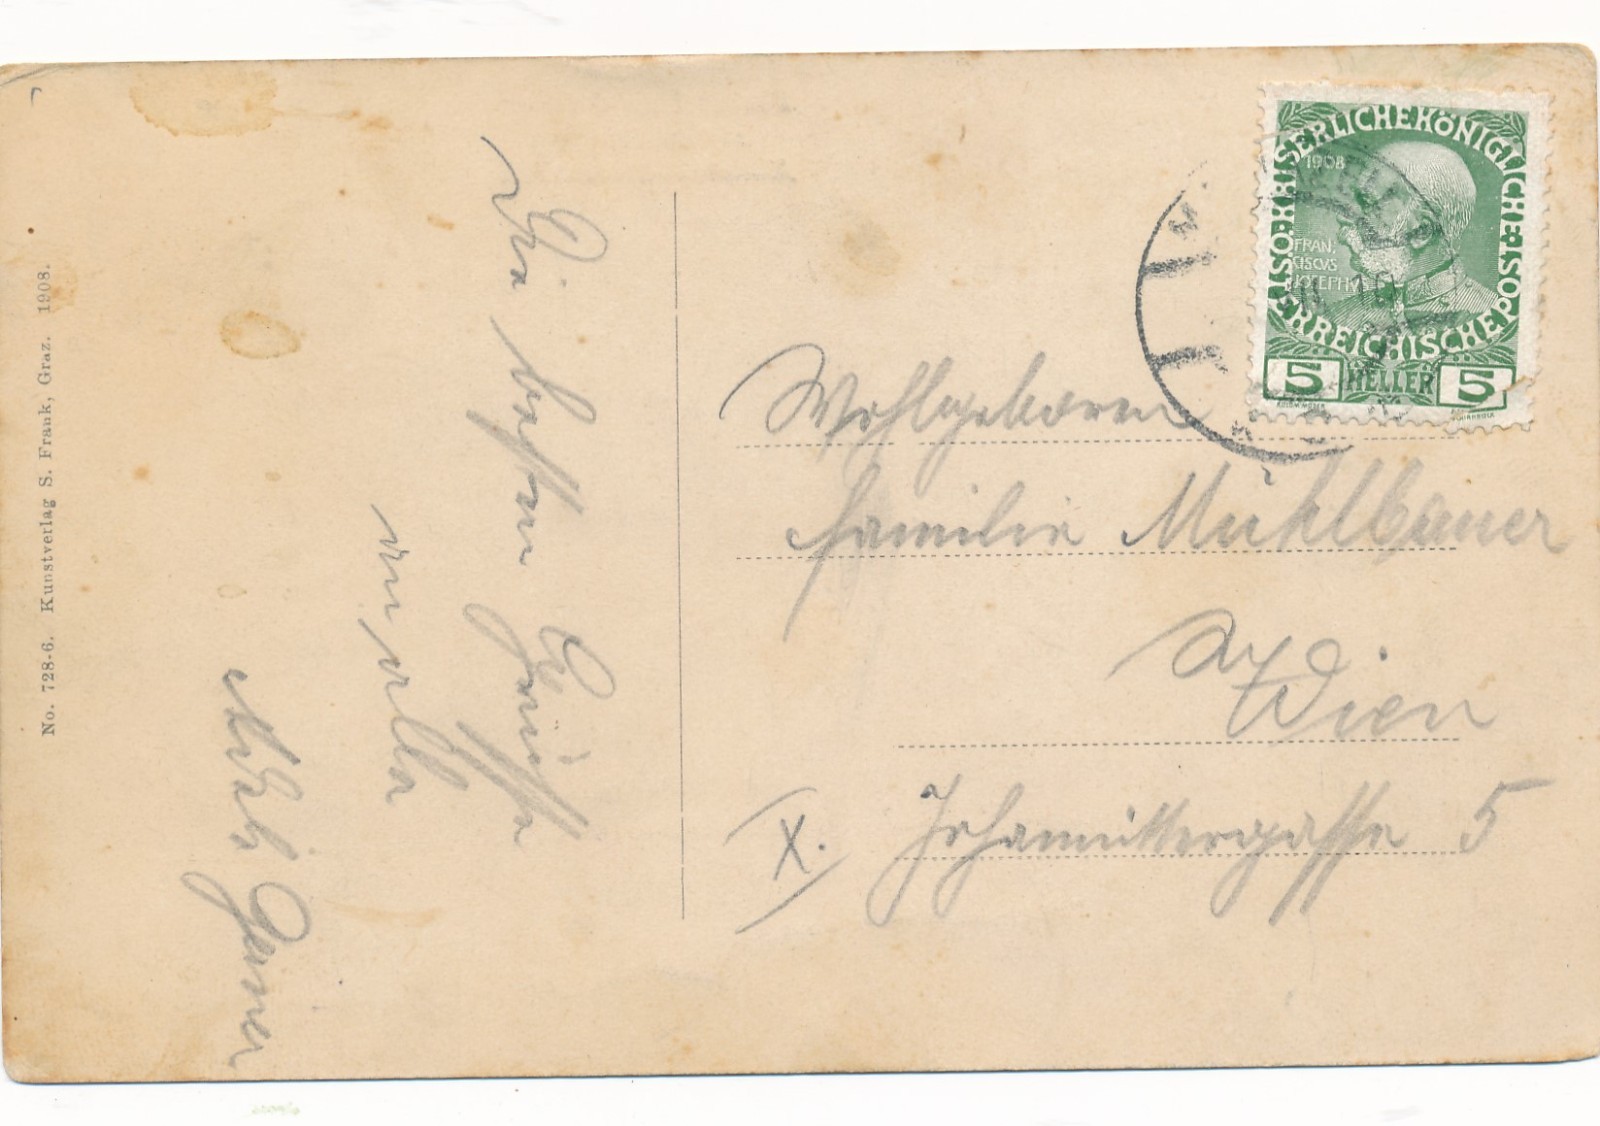 No. 728-6. Kunstverlag S. Frank, Graz. 1908.
Die besten Grüsse
an alle
Gainer
KAISERLICHE KÖNIGLICHE ÖSTERREICHISCHE POST
1908
FRAN
CISCVS
IOSEPHVS
5 HELLER 5
Wohlgeboren
Familie Mühlbauer
Wien
(X.
Johannittergasse 5